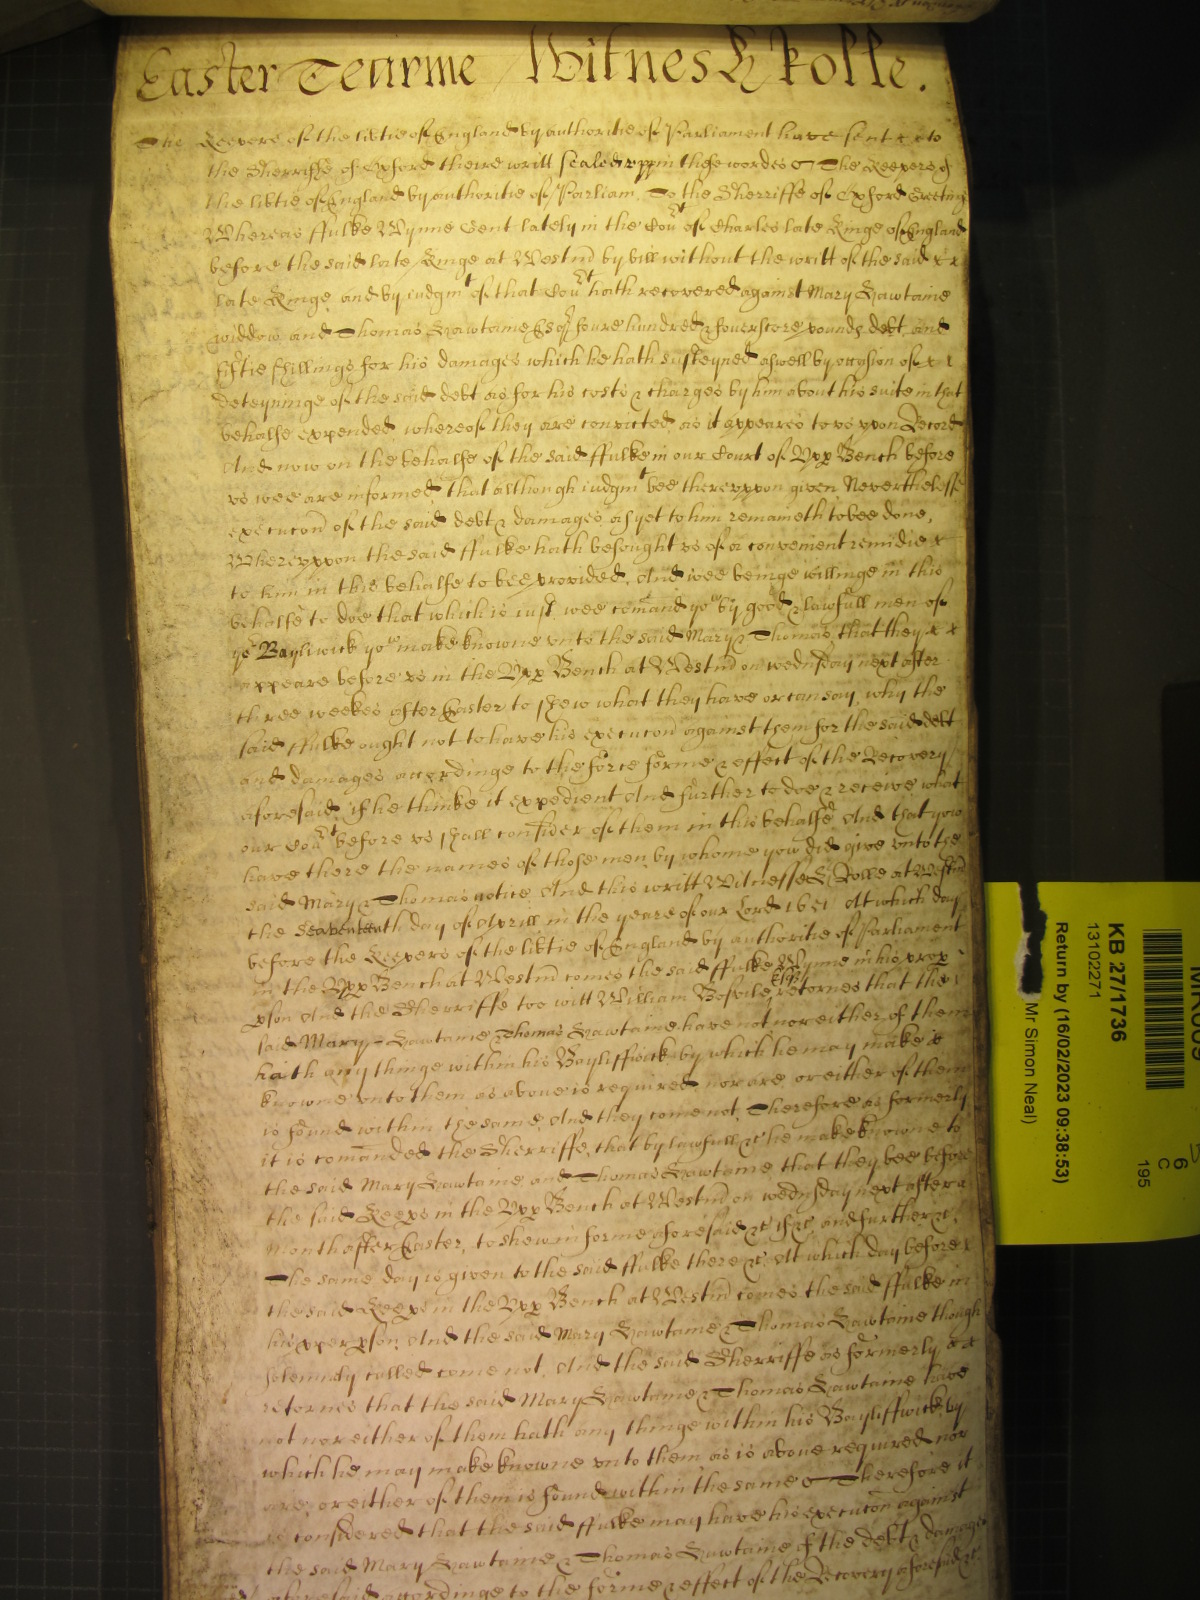 Easter Tearme Witnes H Rolle.
The Keepers of the libtie of England by authoritie of Parliament have sent to
the Sherriffe of Oxford theire writt sealed vpp in these wordes The Keepers of
the libtie of England by authoritie of Parliam. To the Sherriffe of Oxford Greeting
Whereas ffulke Wynne Gent lately in the Cou't of Charles late Kinge of England
before the said late Kinge at Westm by bill without the writt of the said x x
late Kinge and by iudgmt of that Cou't hath recovered against Mary Hawtaine
widdow and Thomas Hawtaine Esq foure hundred & fouerscore pounds debt and
fiftie shillings for his damages which he hath susteyned aswell by occasion of x x
deteyninge of the said debt as for his costs & charges by him about his suite in that
behalfe expended whereof they are convicted as it appeares to vs vpon Record
And now on the behalfe of the said ffulke in our Court of Vpp Bench before
vs wee are informed that although iudgmt bee therevppon given Neverthelesse
execucon of the said debt & damages as yet to him remaineth to bee done,
Wherevppon the said ffulke hath besought vs of a convenient remidie x
to him in this behalfe to bee provided. And wee beinge willinge in this
behalfe to doe that which is iust wee comand yo by good & lawfull men of
yor Bayliwick yo make knowne vnto the said Mary & Thomas that they x x
appeare before vs in the Vpp Bench at Westm on wednsday next after
three weekes after Easter to shew what they have or can say why the
said ffulke ought not to have his execucon against them for the said debt
and damages accordinge to the force forme & effect of the Recovery
aforesaid if he thinke it expedient And further to doe & receive what
our Cou't before vs shall consider of them in this behalfe And that you
have there the names of those men by whome you did give vnto the
said Mary & Thomas notice And this writt Witnesse H Rolle at Westm
the seaventeenth day of Aprill in the yeare of our Lord 1651 At which day
before the Keepers of the libtie of England by authoritie of Parliament
in the Vpp Bench at Westm comes the said ffulke Wynne in his prop
pson And the Sherriffe too witt William retornes that the
said Mary Hawtaine & Thomas Hawtaine have not nor either of them
hath any thinge within his Bayliffwick by which he may make x
knowne vnto them as aboue is required nor are or either of them
is found within the same And they come not. Therefore as formerly
it is comanded the Sherriffe, that by lawfull &c he make knowne to
the said Mary Hawtaine and Thomas Hawtaine that they bee before
the said Keeps in the Vpp Bench at Westm on wednsday next after a
month after Easter, to shew in forme aforesaid &c if &c and further &c.
The same day is given to the said ffulke there &c. At which day before
the said Keeps in the Vpp Bench at Westm comes the said ffulke in
his pper pson And the said Mary Hawtaine & Thomas Hawtaine though
solemnly called come not. And the said Sherriffe as formerly x x
retornes that the said Mary Hawtaine & Thomas Hawtaine have
not nor either of them hath any thinge within his Bayliffwick by
which he may make knowne vnto them as is aboue required nor
are or either of them is found within the same Therefore it
is considered that the said ffulke may have his execucon against
the said Mary Hawtaine & Thomas Hawtaine of the debt & damages
aforesaid accordinge to the forme & effect of the Recovery aforesaid &c
KB 27/1736
13102271
Return by (16/02/2023 09:38:53)
Mr Simon Neal)
6
C
195